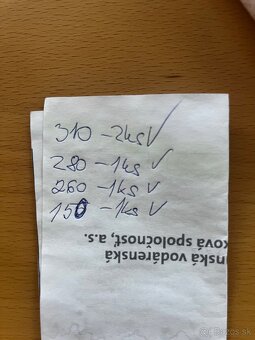 310 - 2ks ✓
280 - 1ks ✓
260 - 1ks ✓
150 - 1ks ✓
nská vodárenská
ková spoločnosť, a.s.
Bazos.sk